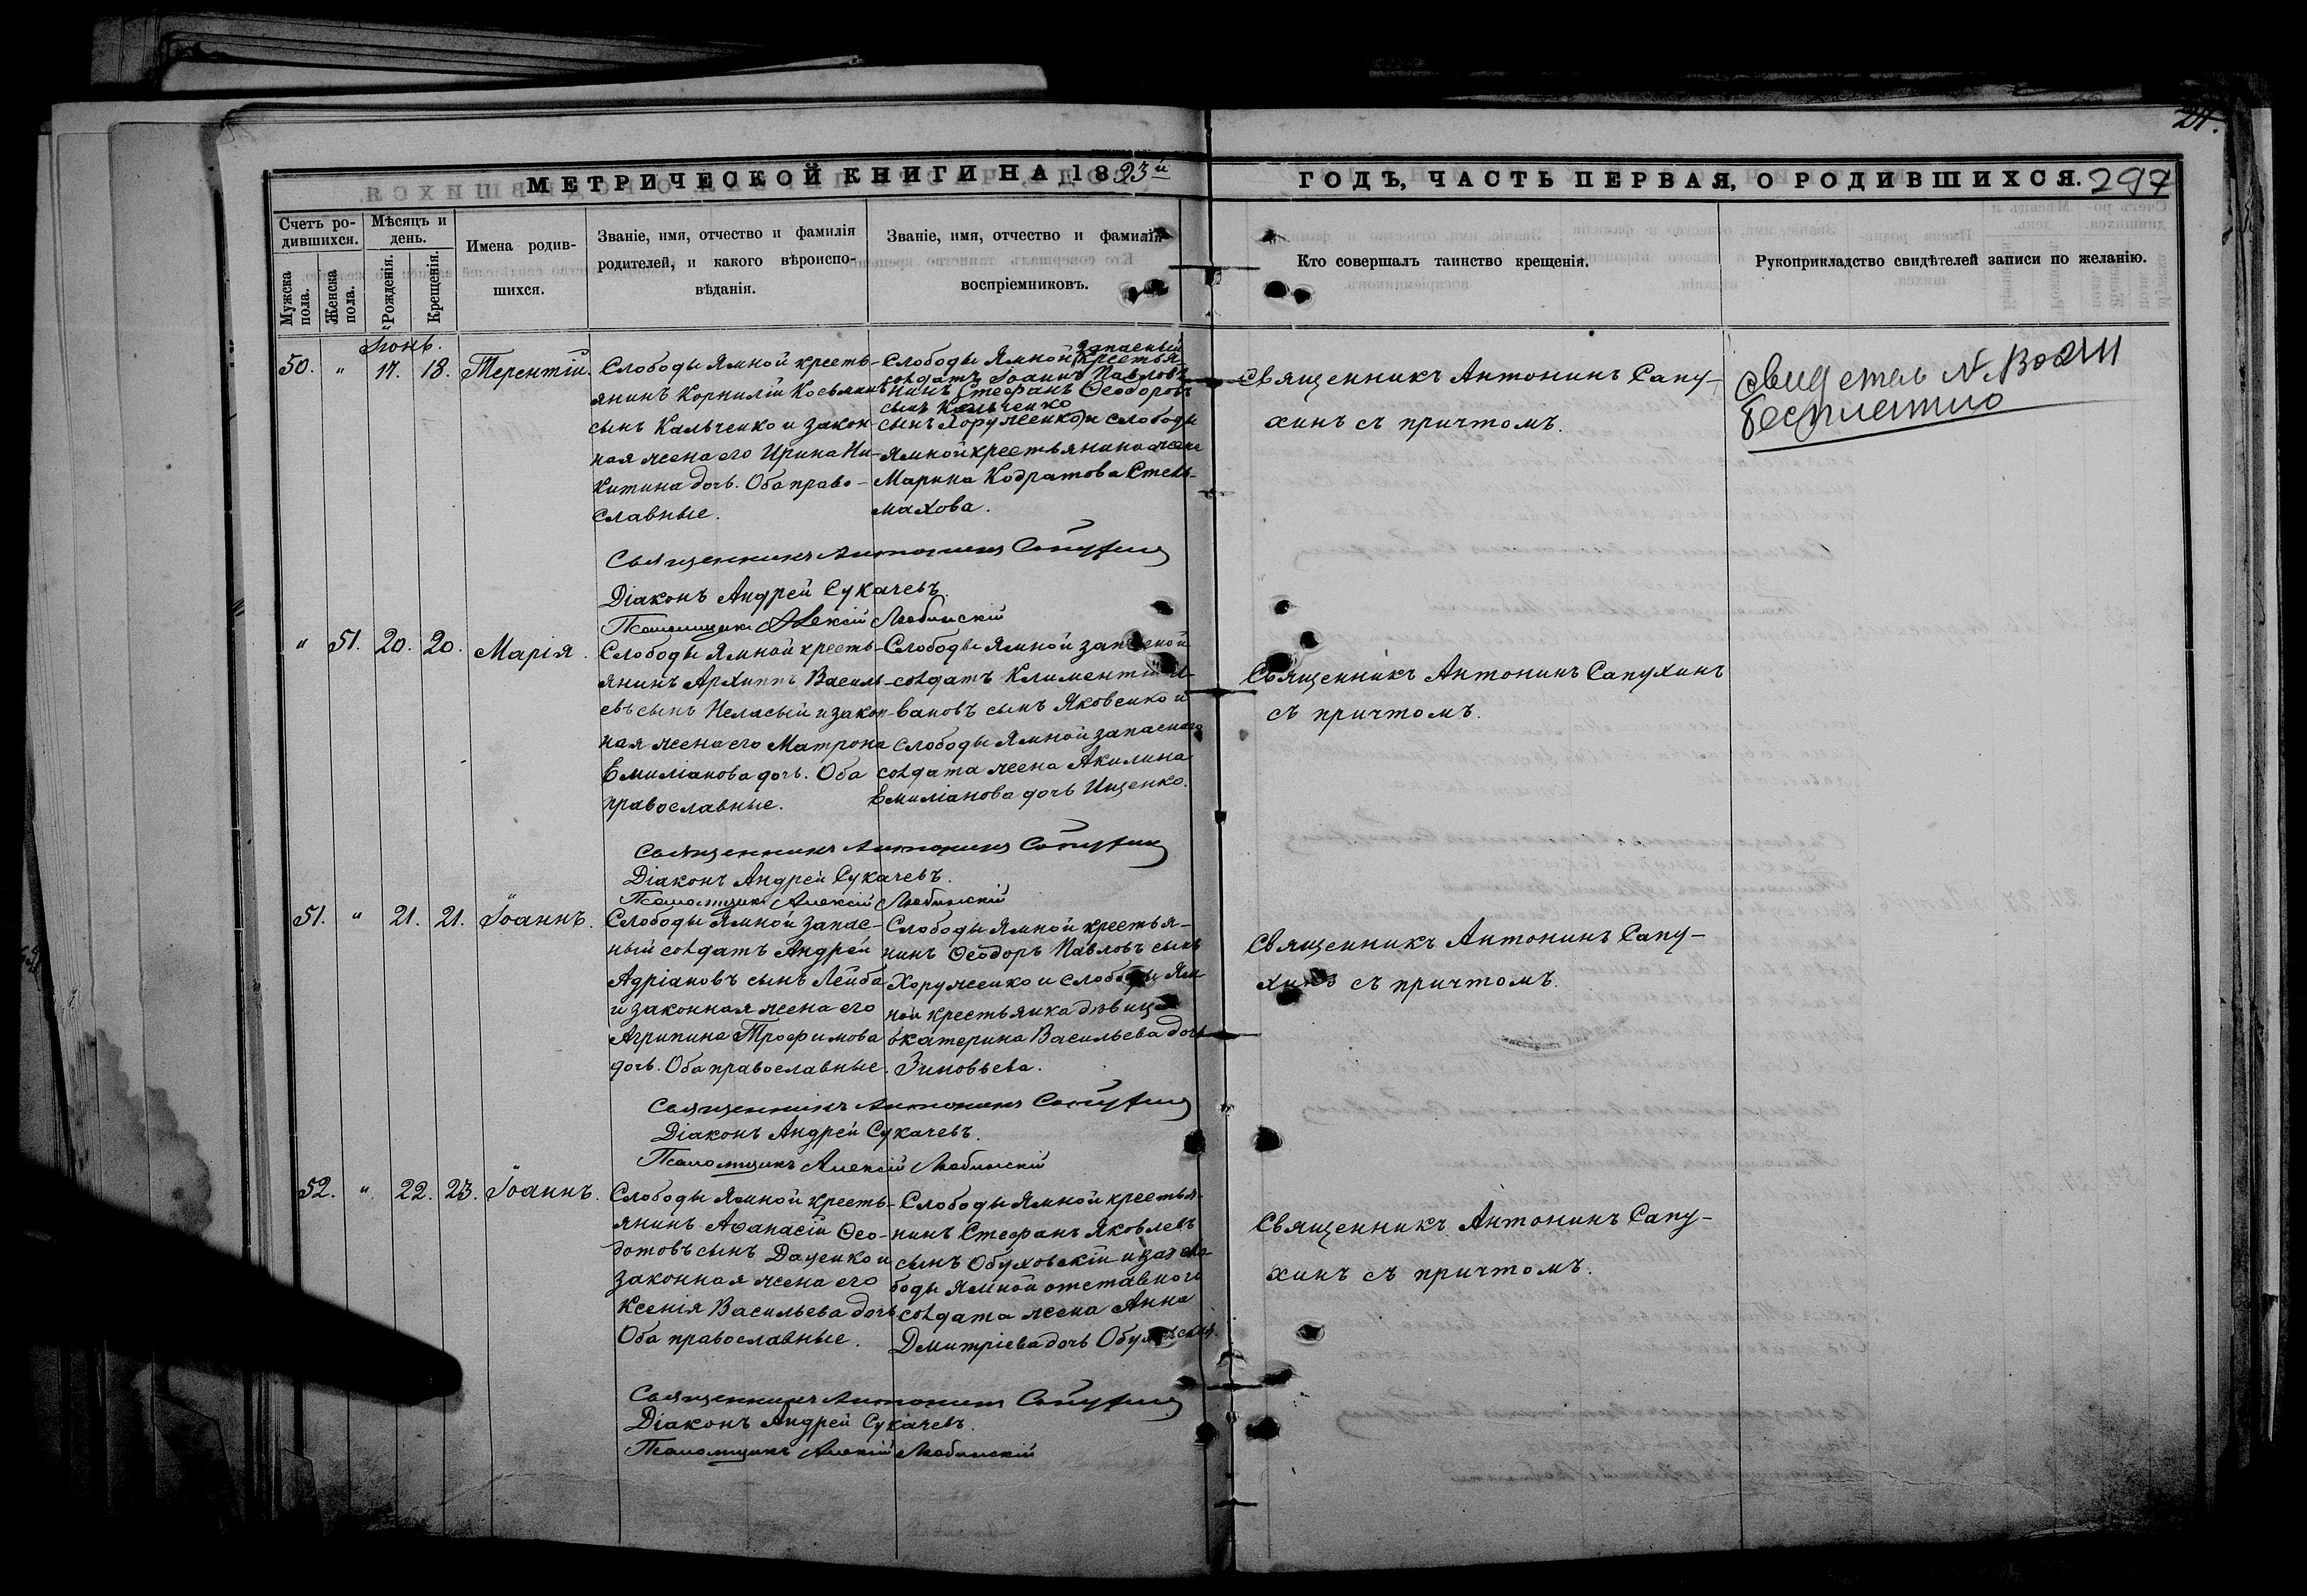 24.
МЕТРИЧЕСКОЙ КНИГИ НА 1893й
ГОДЪ, ЧАСТЬ ПЕРВАЯ, О РОДИВШИХСЯ. 297
Счетъ родившихся.
Мужска пола.
Женска пола.
Мѣсяцъ и день.
Рожденія.
Крещенія.
Имена родившихся.
Званіе, имя, отчество и фамилія
родителей, и какого вѣроиспо-
вѣданія.
Званіе, имя, отчество и фамилія
воспріемниковъ.
Кто совершалъ таинство крещенія.
Рукоприкладство свидѣтелей записи по желанію.
Іюнь.
50. " 17. 18. Терентій.
Слободы Ямной кресть-
янинъ Корнилій Косьминъ
сынъ Кальченко и закон-
ная жена его Ирина Ни-
китина дочь. Оба право-
славные.
Слободы Ямной запасный
солдатъ Іоаннъ Павловъ
сынъ Кальченко
крестья-
нинъ Стефанъ Ѳеодоровъ
сынъ Хоруженко и слободы
Ямной крестьянина жена
Марина Кодратова Стель-
махова.
Священникъ Антонинъ Сапу-
хинъ съ причтомъ.
свидетел N
бесплатно
Священникъ Антонинъ Сапухинъ
Діаконъ Андрей Сукачевъ.
Псаломщикъ Алексій Любинскій
" 51. 20. 20. Марія.
Слободы Ямной кресть-
янинъ Архиппъ Василь-
евъ сынъ Неласый и закон-
ная жена его Матрона
Емиліанова дочь. Оба
православные.
Слободы Ямной запасной
солдатъ Климентій И-
вановъ сынъ Яковенко и
слободы Ямной запаснаго
солдата жена Акилина
Емиліанова дочь Ищенко.
Священникъ Антонинъ Сапухинъ
съ причтомъ.
Священникъ Антонинъ Сапухинъ
Діаконъ Андрей Сукачевъ.
Псаломщикъ Алексій Любинскій
51. " 21. 21. Іоаннъ.
Слободы Ямной запас-
ный солдатъ Андрей
Адріановъ сынъ Лейба
и законная жена его
Агрипина Трофимова
дочь. Оба православные.
Слободы Ямной крестья-
нинъ Ѳеодоръ Павловъ сынъ
Хоруженко и слободы Ям-
ной крестьянка дѣвица
Екатерина Васильева дочь
Зиновьева.
Священникъ Антонинъ Сапу-
хинъ съ причтомъ.
Священникъ Антонинъ Сапухинъ
Діаконъ Андрей Сукачевъ.
Псаломщикъ Алексій Любинскій
52. " 22. 23. Іоаннъ.
Слободы Ямной кресть-
янинъ Аѳанасій Ѳео-
дотовъ сынъ Даценко и
законная жена его
Ксенія Васильева дочь
Оба православные.
Слободы Ямной крестья-
нинъ Стефанъ Яковлевъ
сынъ Обуховскій и сло-
боды Ямной отставного
солдата жена Анна
Дмитріева дочь Обуховская.
Священникъ Антонинъ Сапу-
хинъ съ причтомъ.
Священникъ Антонинъ Сапухинъ
Діаконъ Андрей Сукачевъ.
Псаломщикъ Алексій Любинскій